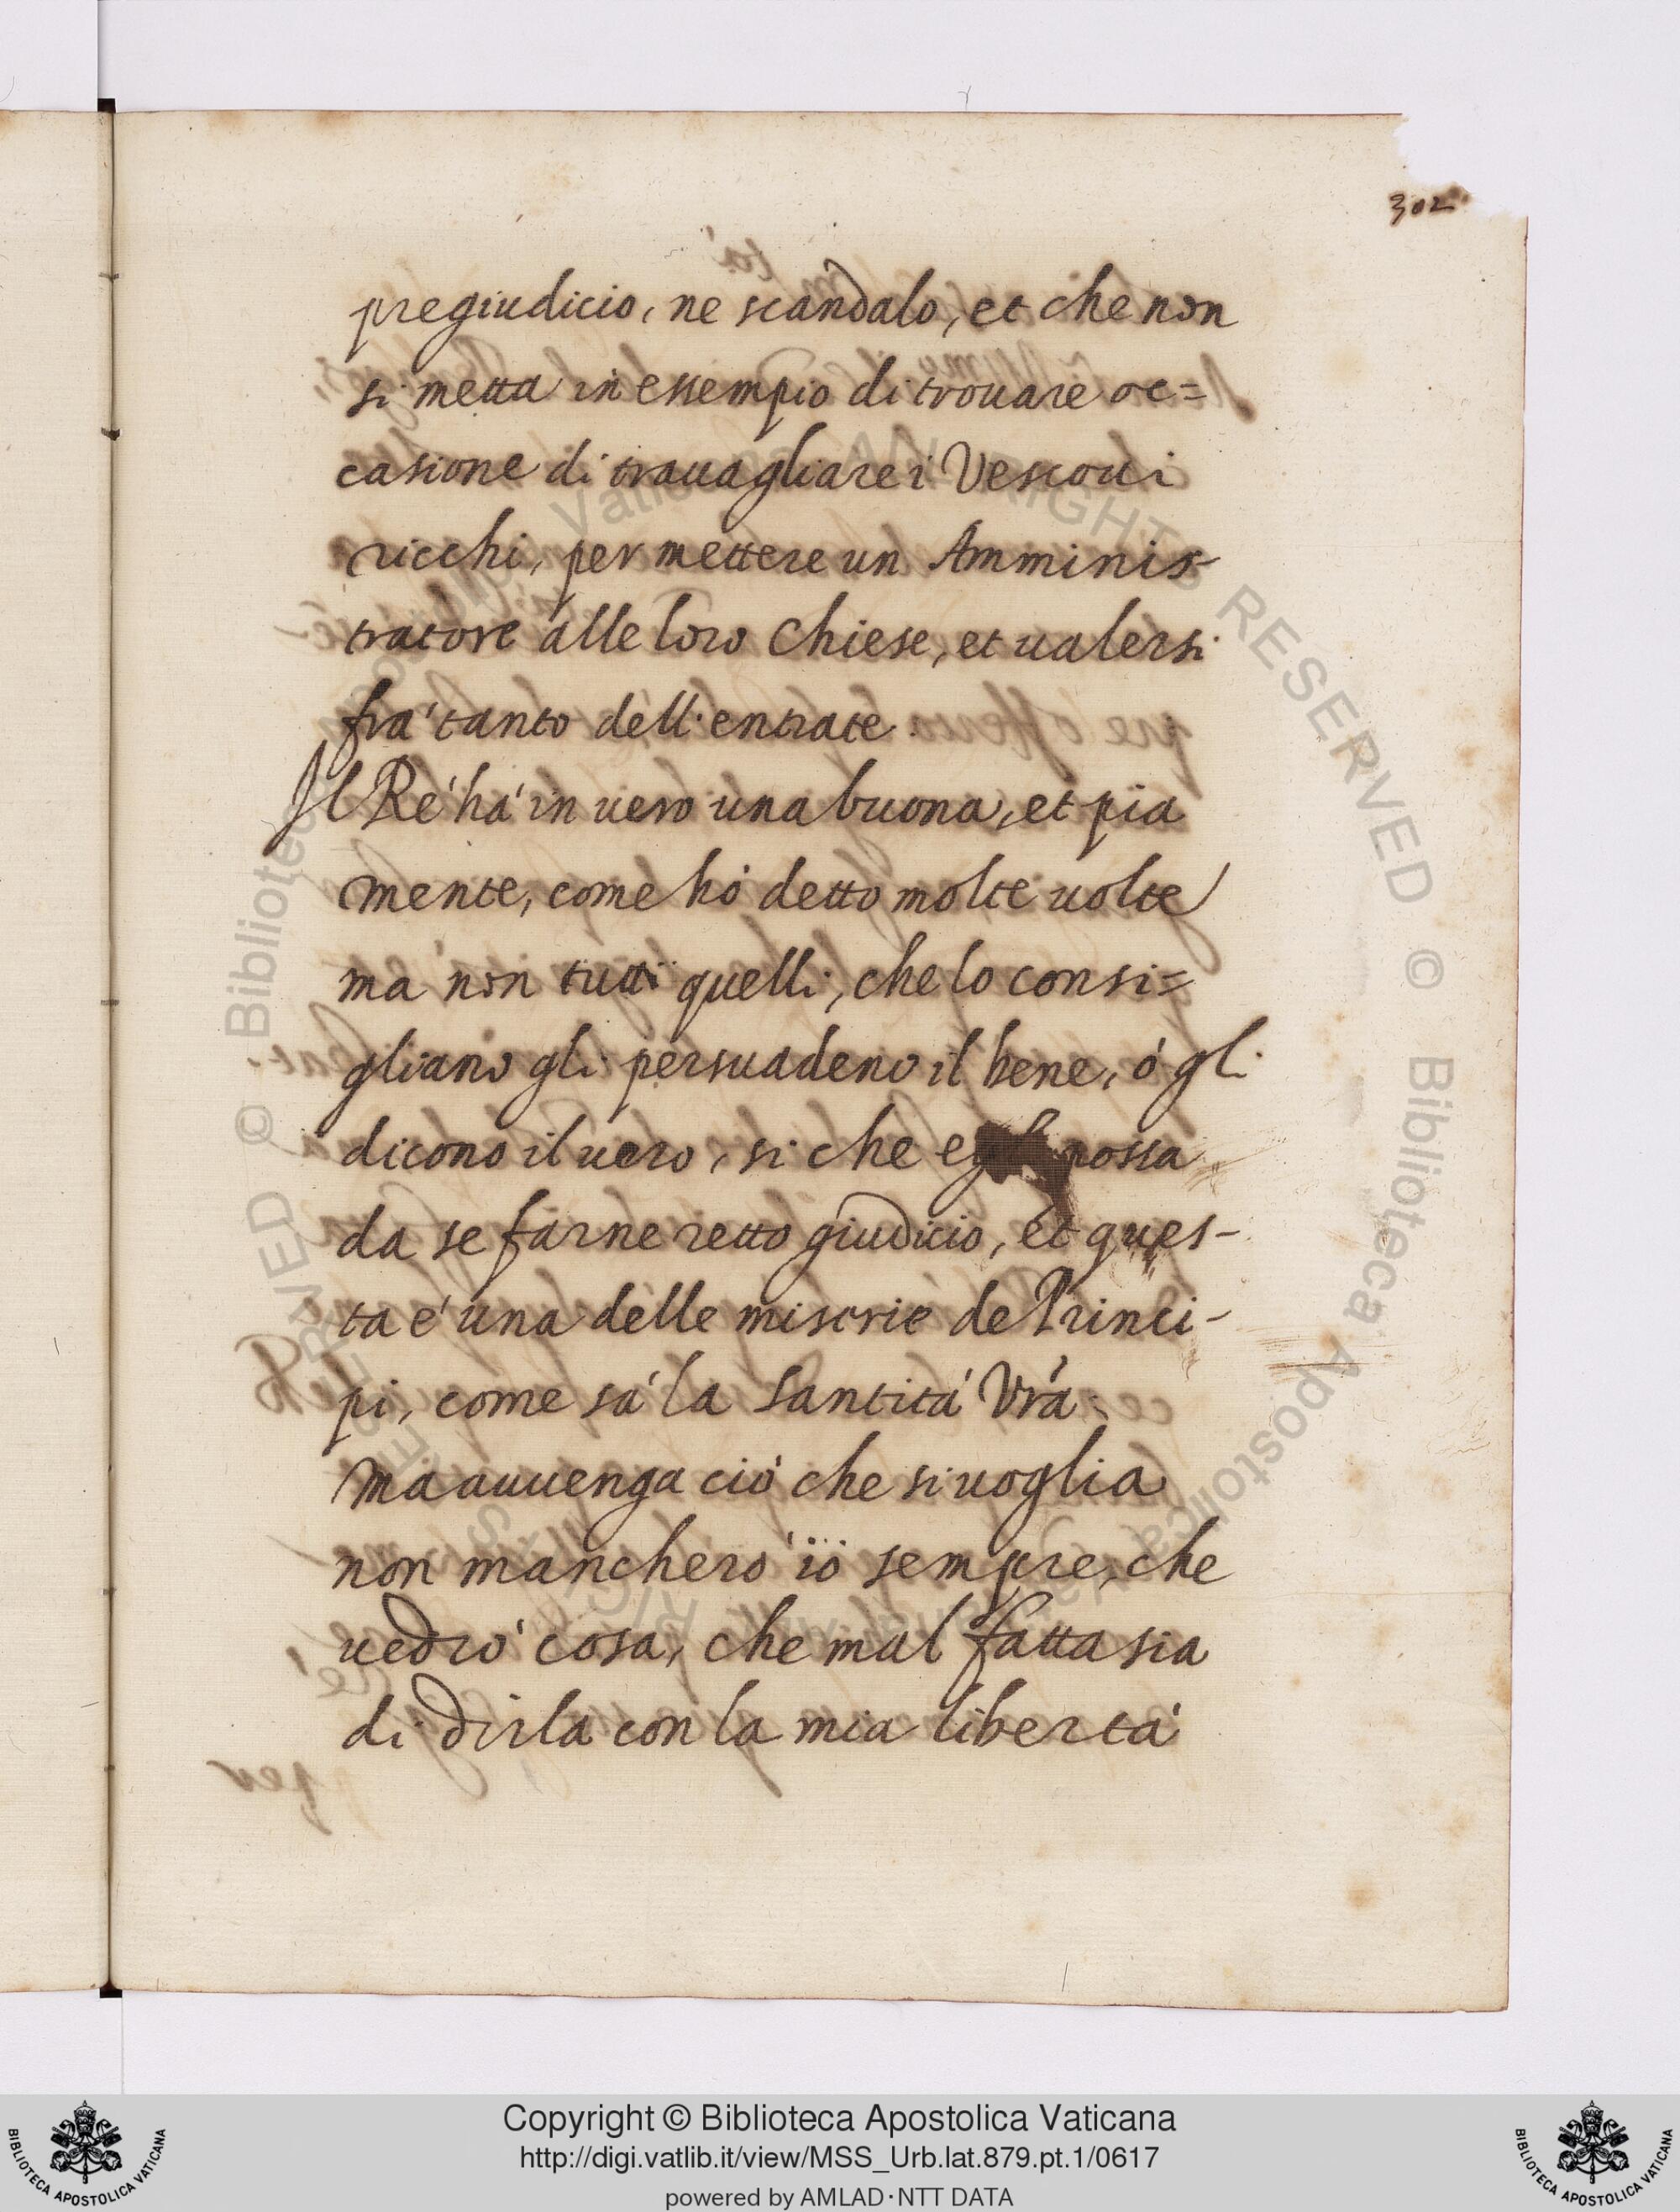 302
pregiudicio, ne scandalo, et che non
si metta in essempio di trouare oc=
casione di trauagliare i Vescoui
ricchi, per mettere un Amminis-
tratore alle loro Chiese, et ualersi
frà tanto dell'entrate.
Il Ré há in uero una buona, et pia
mente, come hò detto molte uolte
ma non tutti quelli, che lo consi=
gliano gli persuadeno il bene, ó gli
dicono il uero, si che egli possa
da se farne retto giudicio, et ques-
ta é una delle miserie de Princi-
pi, come sá la Santitá Vrã.
Ma auuenga ció che si uoglia
non mancheró io sempre, che
uedró cosa, che mal fatta sia
di dirla con la mia libertá
Copyright © Biblioteca Apostolica Vaticana
http://digi.vatlib.it/view/MSS_Urb.lat.879.pt.1/0617
powered by AMLAD·NTT DATA
BIBLIOTECA APOSTOLICA VATICANA
BIBLIOTECA APOSTOLICA VATICANA